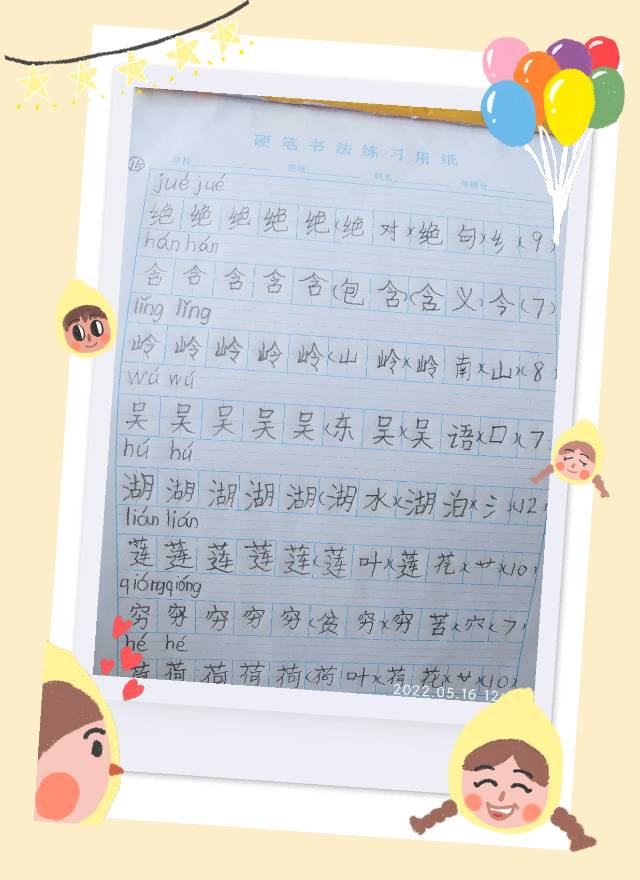 硬笔书法练习用纸
学校 班级 姓名 等级分
15
jué jué
绝 绝 绝 绝 绝 (绝 对)(绝 句)(纟)(9)
hán hán
含 含 含 含 含 (包 含)(含 义)(今)(7)
lǐng lǐng
岭 岭 岭 岭 岭 (山 岭)(岭 南)(山)(8)
wú wú
吴 吴 吴 吴 吴 (东 吴)(吴 语)(口)(7)
hú hú
湖 湖 湖 湖 湖 (湖 水)(湖 泊)(氵)(12)
lián lián
莲 莲 莲 莲 莲 (莲 叶)(莲 花)(艹)(10)
qióng qióng
穷 穷 穷 穷 穷 (贫 穷)(穷 苦)(穴)(7)
hé hé
荷 荷 荷 荷 荷 (荷 叶)(荷 花)(艹)(10)
2022.05.16 12